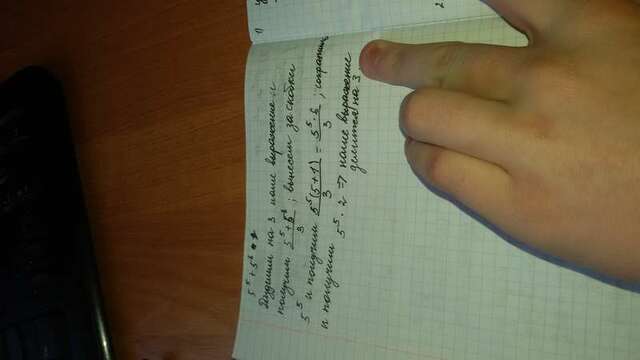 5⁵ + 5⁶
Подишим на 3 наше выражение и
получим (5⁵+5⁶)/3 ; вынесем за скобки
5⁵ и получим 5⁵(5+1)/3 = 5⁵·6/3 ; сократим
и получим
5⁵ · 2 ⇒ наше выражение
делится на 3.
1)
2